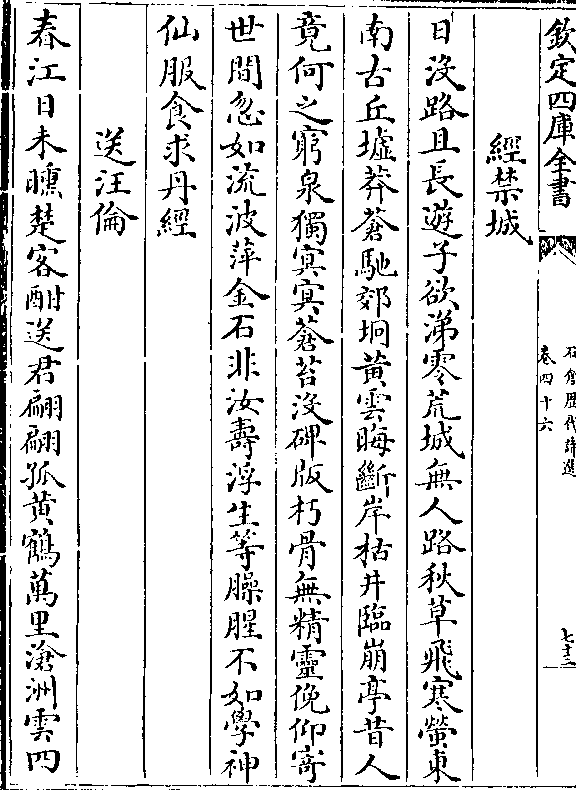 欽定四庫全書
石倉歷代詩選
卷四十六
經禁城
日没路且長遊子欲涕零荒城無人路秋草飛寒螢東
南古丘墟莽蒼馳郊坰黄雲晦斷岸枯井臨崩亭昔人
竟何之窮泉獨冥冥蒼苔没碑版朽骨無精靈俛仰寄
世間忽如流波萍金石非汝壽浮生等臊腥不如學神
仙服食求丹經
送汪倫
春江日未曛楚客酣送君翩翩孤黄鶴萬里滄洲雲四